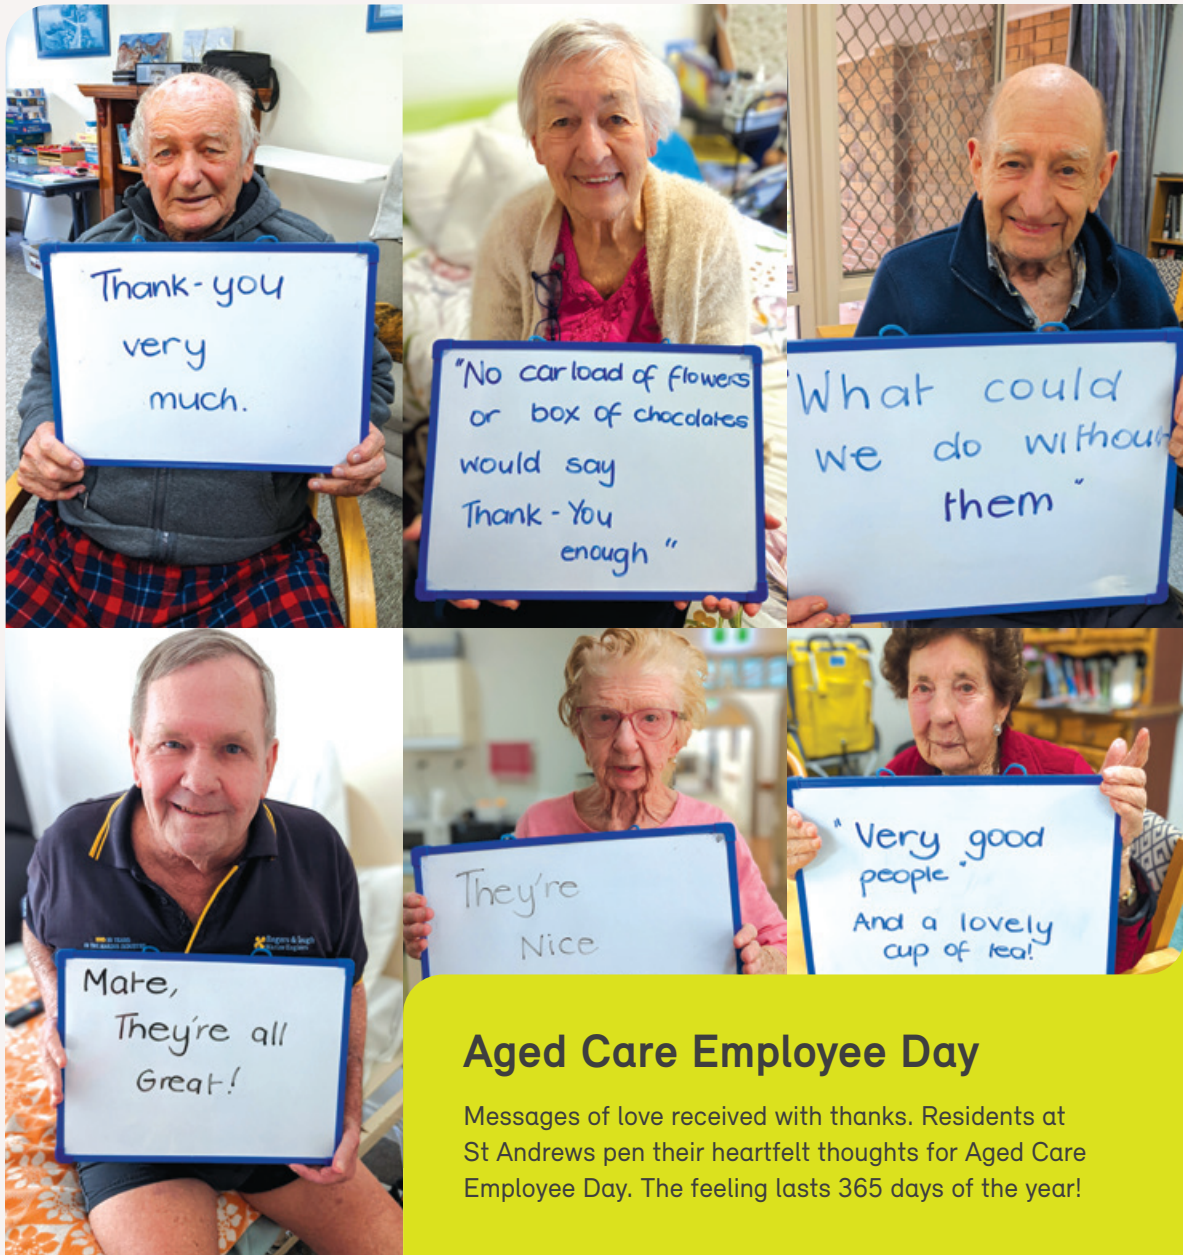 Thank-you
very
much.
"No carload of flowers
or box of chocolates
would say
Thank-You
enough"
What could
we do without
them"
Mate,
They're all
Great!
They're
Nice
"Very good
people"
And a lovely
cup of tea!
Aged Care Employee Day
Messages of love received with thanks. Residents at
St Andrews pen their heartfelt thoughts for Aged Care
Employee Day. The feeling lasts 365 days of the year!